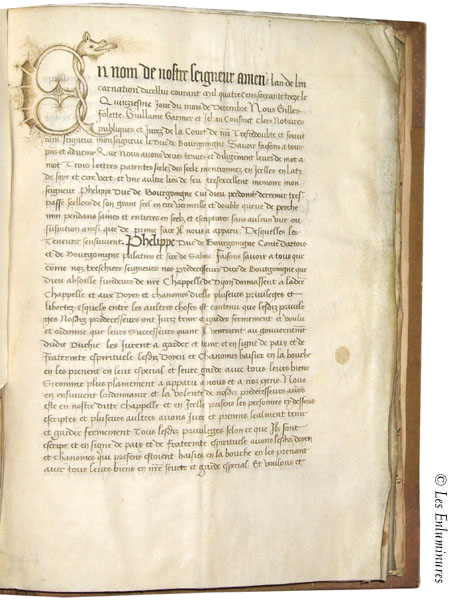 En nom de nostre seigneur amen lan de lin
carnation dicellui courant mil quatre cens soixante treze le
Quinziesme Jour du mois de Decembre Nous Gilles
Folette Guillame Garnier et Jehan Cousinet clers Notaires
publiques et Jurez de la Court de mr
seigneur monseigneur le Duc de Bourgomgne Savoir faisons a tous
que Nous avons veues tenues et diligement leues de mot a
mot Trois lettres patentes seeles des seelz mentionnez en Jcelles en latz
de soye et cire vert et une aultre lres de feu tresexcellent memoire mon
seigneur Phelippe Duc de Bourgomgne Cui dieu perdomt derremer tres
passe seellees de son grant seel en cire vermeille et double queue de perche
min pendans saines et entieres en seelz et escriptures sans auleun vice ou
suspition amsi que de prime face Il nous a apparu Desquelles les
Teneurs sensuivent Phelippe Duc de Bourgomgne Conte Dartois
et de Bourgomgne palatins et sire de Salins Faisons savoir a tous que
come noz treschiers seigneurs noz predecesseurs Ducz de Bourgomgne que
Dieu absoille fundeurs de nre Chappelle de Dijon donnassent a ladite
Chappelle et aux Doyen et chanomes dicelle pluseurs privileges et
libertez esquelz entre les aultres choses est contenu que lesdiz privile
ges Nosdiz predecesseurs ont jurez tenir et garder fermement et voulu
et ordonne que leurs Successeurs quant Ilz venrroient au gouvernement
dudit Duchie les Jurent a garder et tenir et en signe de paix et de
fraternite espirituele lesdiz Doyen et Chanomes baisier en la bouche
et les prenent en leur especial et seure garde avec tous leurs biens
Sicomme plus plainement a apparu a nous et a noz gens Nous
en ensuivent lordonnance et la volente de nosdiz predecesseurs avons
este en nostre dite chappelle et en Jcelle presens les personnes cy dessous
escriptes et pluseurs aultres avons Jure et promis lealment tenir
et garder fermement Tous lesdiz privileges selon ce que Ilz sont
escrips et en signe de paix et de fraternite espirituele avons lesdiz doyen
et chanomes qui presens estoient baisiez en la bouche en les prenant
avec tous leurs biens en nre seurte et garde especial Et voulons et
© Les Enluminures